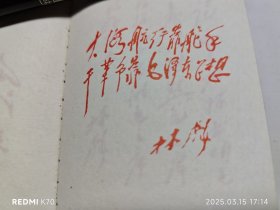 大海航行靠舵手
干革命靠毛泽东思想
林彪
REDMI K70
2025.03.15 17:14